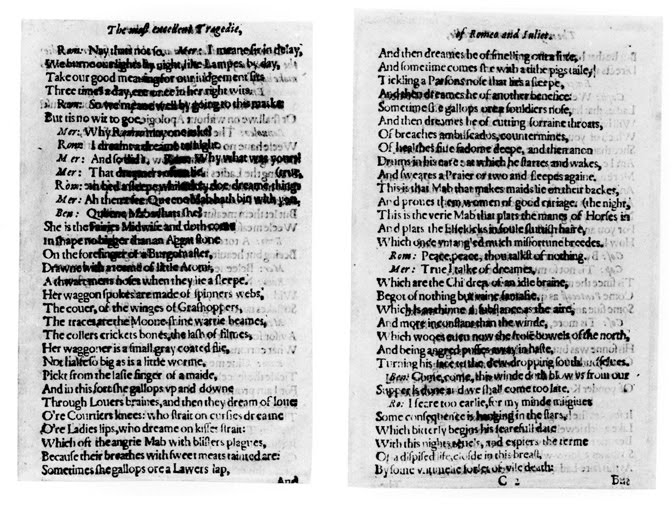 The most excellent Tragedie,
Rom: Nay thats not so. Mer: I meane sir in delay,
We burne our lights by night, like Lampes by day,
Take our good meaning for our iudgement sits
Three times a day, ere once in her right wits.
Rom: So we meane well by going to this maske:
But tis no wit to goe.
Mer: Why Romeo may one aske?
Rom: I dreamt a dreame to night.
Mer: And so did I. Rom: Why what was yours?
Mer: That dreamers often lie.
Rom: in bed a sleepe while they doe dreame things true,
Mer: Ah then I see Queene Mab hath bin with you,
Ben: Queene Mab whats she?
She is the Fairies Midwife and doth come
In shape no bigger than an Aggat stone
On the forefinger of a Burgomaster,
Drawne with a teeme of little Atomi,
A thwart mens noses when they lie a sleepe.
Her waggon spokes are made of spinners webs,
The couer, of the winges of Grashoppers,
The traces are the Moone-shine watrie beames,
The collers crickets bones, the lash of filmes,
Her waggoner is a small gray coated flie,
Not halfe so big as is a little worme,
Pickt from the lasie finger of a maide,
And in this sort she gallops vp and downe
Through Louers braines, and then they dream of loue:
O're Courtiers knees: who strait on cursies dreame
O're Ladies lips, who dreame on kisses strait:
Which oft the angrie Mab with blisters plagues,
Because their breathes with sweet meats tainted are:
Sometimes she gallops ore a Lawers lap,
And
of Romeo and Iuliet.
And then dreames he of smelling out a sute,
And sometime comes she with a tithe pigs taile,
Tickling a Parsons nose that lies a sleepe,
And then dreames he of another benefice:
Sometime she gallops ore a souldiers nose,
And then dreames he of cutting forraine throats,
Of breaches ambuscados, countermines,
Of healthes fiue fadome deepe, and then anon
Drums in his eare: at which he startes and wakes,
And sweares a Praier or two and sleepes againe.
This is that Mab that makes maids lie on their backes,
And proues them women of good cariage. (the night,
This is the verie Mab that plats the manes of Horses in
And plats the Elfelocks in foule sluttish haire,
Which once vntangled much misfortune breedes.
Rom: Peace, peace, thou talkst of nothing.
Mer: True I talke of dreames,
Which are the Children of an idle braine,
Begot of nothing but vaine fantasie,
Which is as thinne a substance as the aire,
And more inconstant than the winde,
Which wooes euen now the frose bowels of the north,
And being angred puffes away in haste,
Turning his face to the dew-dropping south.
Ben: Come, come, this winde doth blow vs from our selues.
Supper is done and we shall come too late.
Ro: I feare too earlie, for my minde misgiues
Some consequence is hanging in the stars,
Which bitterly begins his fearefull date
With this nights reuels, and expiers the terme
Of a dispised life, closde in this breast,
By some vntimelie forfet of vile death:
C 2 But